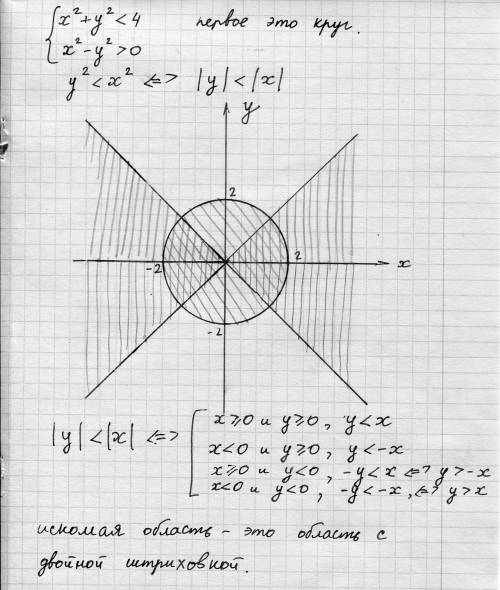 { x²+y²<4 первое это круг.
x²-y²>0
y²<x² <=> |y|<|x|
y
2
-2 2 x
-2
|y|<|x| <=> [ x⩾0 и y⩾0, y<x
x<0 и y⩾0, y<-x
x⩾0 и y<0, -y<x <=> y>-x
x<0 и y<0, -y<-x, <=> y>x
искомая область - это область с
двойной штриховной.